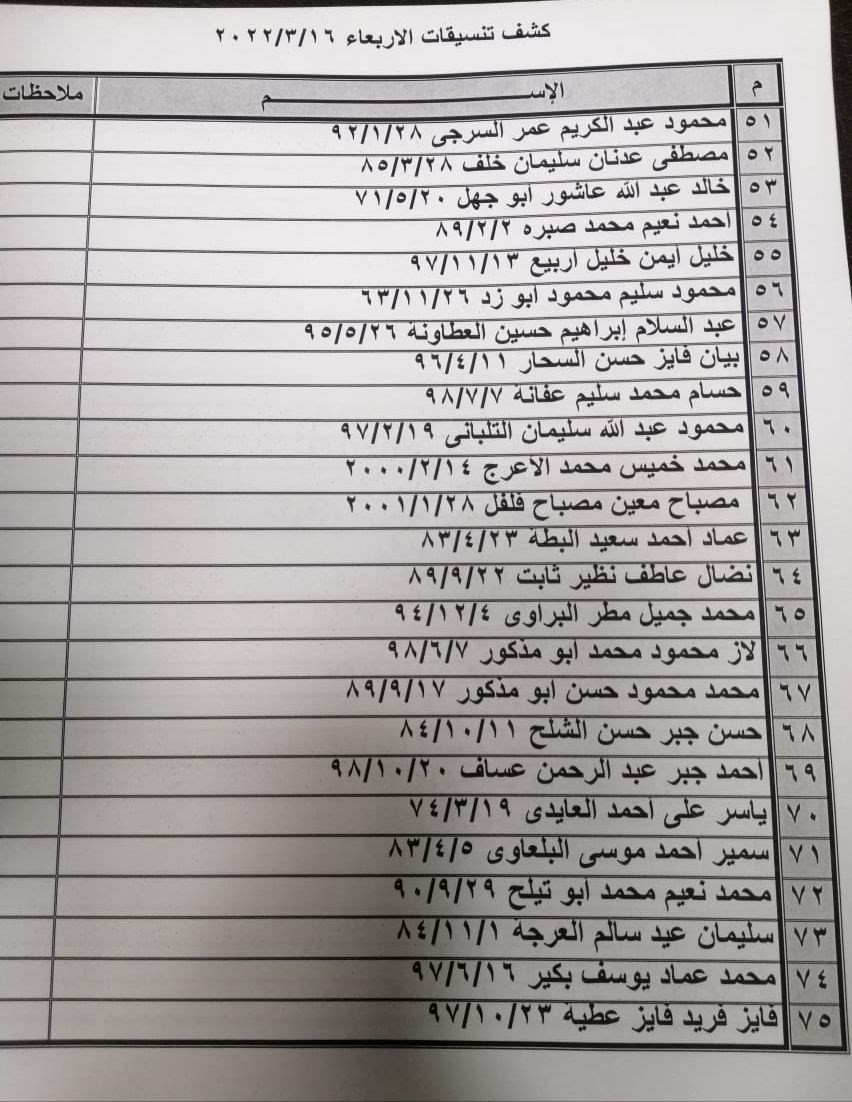 كشف تنسيقات الاربعاء ٢٠٢٢/٣/١٦
م الإســـــــم ملاحظات
٥١ محمود عبد الكريم عمر السرجى ٩٢/١/٢٨
٥٢ مصطفى عدنان سليمان خلف ٨٥/٣/٢٨
٥٣ خالد عبد الله عاشور ابو جهل ٧١/٥/٢٠
٥٤ احمد نعيم محمد صبره ٨٩/٢/٢
٥٥ خليل ايمن خليل اربيع ٩٧/١١/١٣
٥٦ محمود سليم محمود ابو زد ٦٣/١١/٢٦
٥٧ عبد السلام إبراهيم حسين العطاونة ٩٥/٥/٢٦
٥٨ بيان فايز حسن السحار ٩٦/٤/١١
٥٩ حسام محمد سليم عفانة ٩٨/٧/٧
٦٠ محمود عبد الله سليمان التلبانى ٩٧/٢/١٩
٦١ محمد خميس محمد الأعرج ٢٠٠٠/٢/١٤
٦٢ مصباح معين مصباح فلفل ٢٠٠١/١/٢٨
٦٣ عماد احمد سعيد البطة ٨٣/٤/٢٣
٦٤ نضال عاطف نظير ثابت ٨٩/٩/٢٢
٦٥ محمد جميل مطر البراوى ٩٤/١٢/٤
٦٦ لاز محمود محمد ابو مذكور ٩٨/٦/٧
٦٧ محمد محمود حسن ابو مذكور ٨٩/٩/١٧
٦٨ حسن جبر حسن الشلح ٨٤/١٠/١١
٦٩ احمد جبر عبد الرحمن عساف ٩٨/١٠/٢٠
٧٠ ياسر على احمد العايدى ٧٤/٣/١٩
٧١ سمير احمد موسى البلعاوى ٨٣/٤/٥
٧٢ محمد نعيم محمد ابو تيلح ٩٠/٩/٢٩
٧٣ سليمان عيد سالم العرجة ٨٤/١١/١
٧٤ محمد عماد يوسف بكير ٩٧/٦/١٦
٧٥ فايز فريد فايز عطية ٩٧/١٠/٢٣